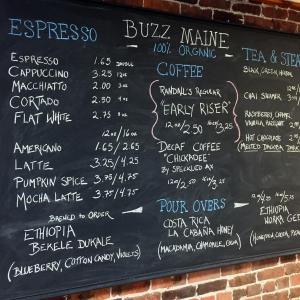 ESPRESSO
ESPRESSO 1.65
CAPPUCCINO 3.25 12oz
MACCHIATO 2.00 3oz
CORTADO 2.50 4oz
FLAT WHITE 2.75 8oz
12oz/16oz
AMERICANO 1.65/2.65
LATTE 3.25/4.25
PUMPKIN SPICE 3.75/4.75
MOCHA LATTE 3.75/4.75
BREWED TO ORDER
ETHIOPIA
BEKELE DUKALE
(BLUEBERRY, COTTON CANDY, VIOLETS)
BUZZ MAINE
100% ORGANIC
COFFEE
RANDALL'S REGULAR
"EARLY RISER"
12oz/2.50 16oz/3.25
DECAF COFFEE
"CHICKADEE"
BY SPECKLED AX
12oz/2.50
POUR OVERS
COSTA RICA
LA CABAÑA HONEY
(MACADAMIA, CHAMOMILE, COLA)
TEA & STEA
BLACK, GREEN, HERBAL
CHAI STEAMER
RASPBERRY, CARAMEL
VANILLA, HAZELNUT
HOT CHOCOLATE
ETHIOPIA
WORKA